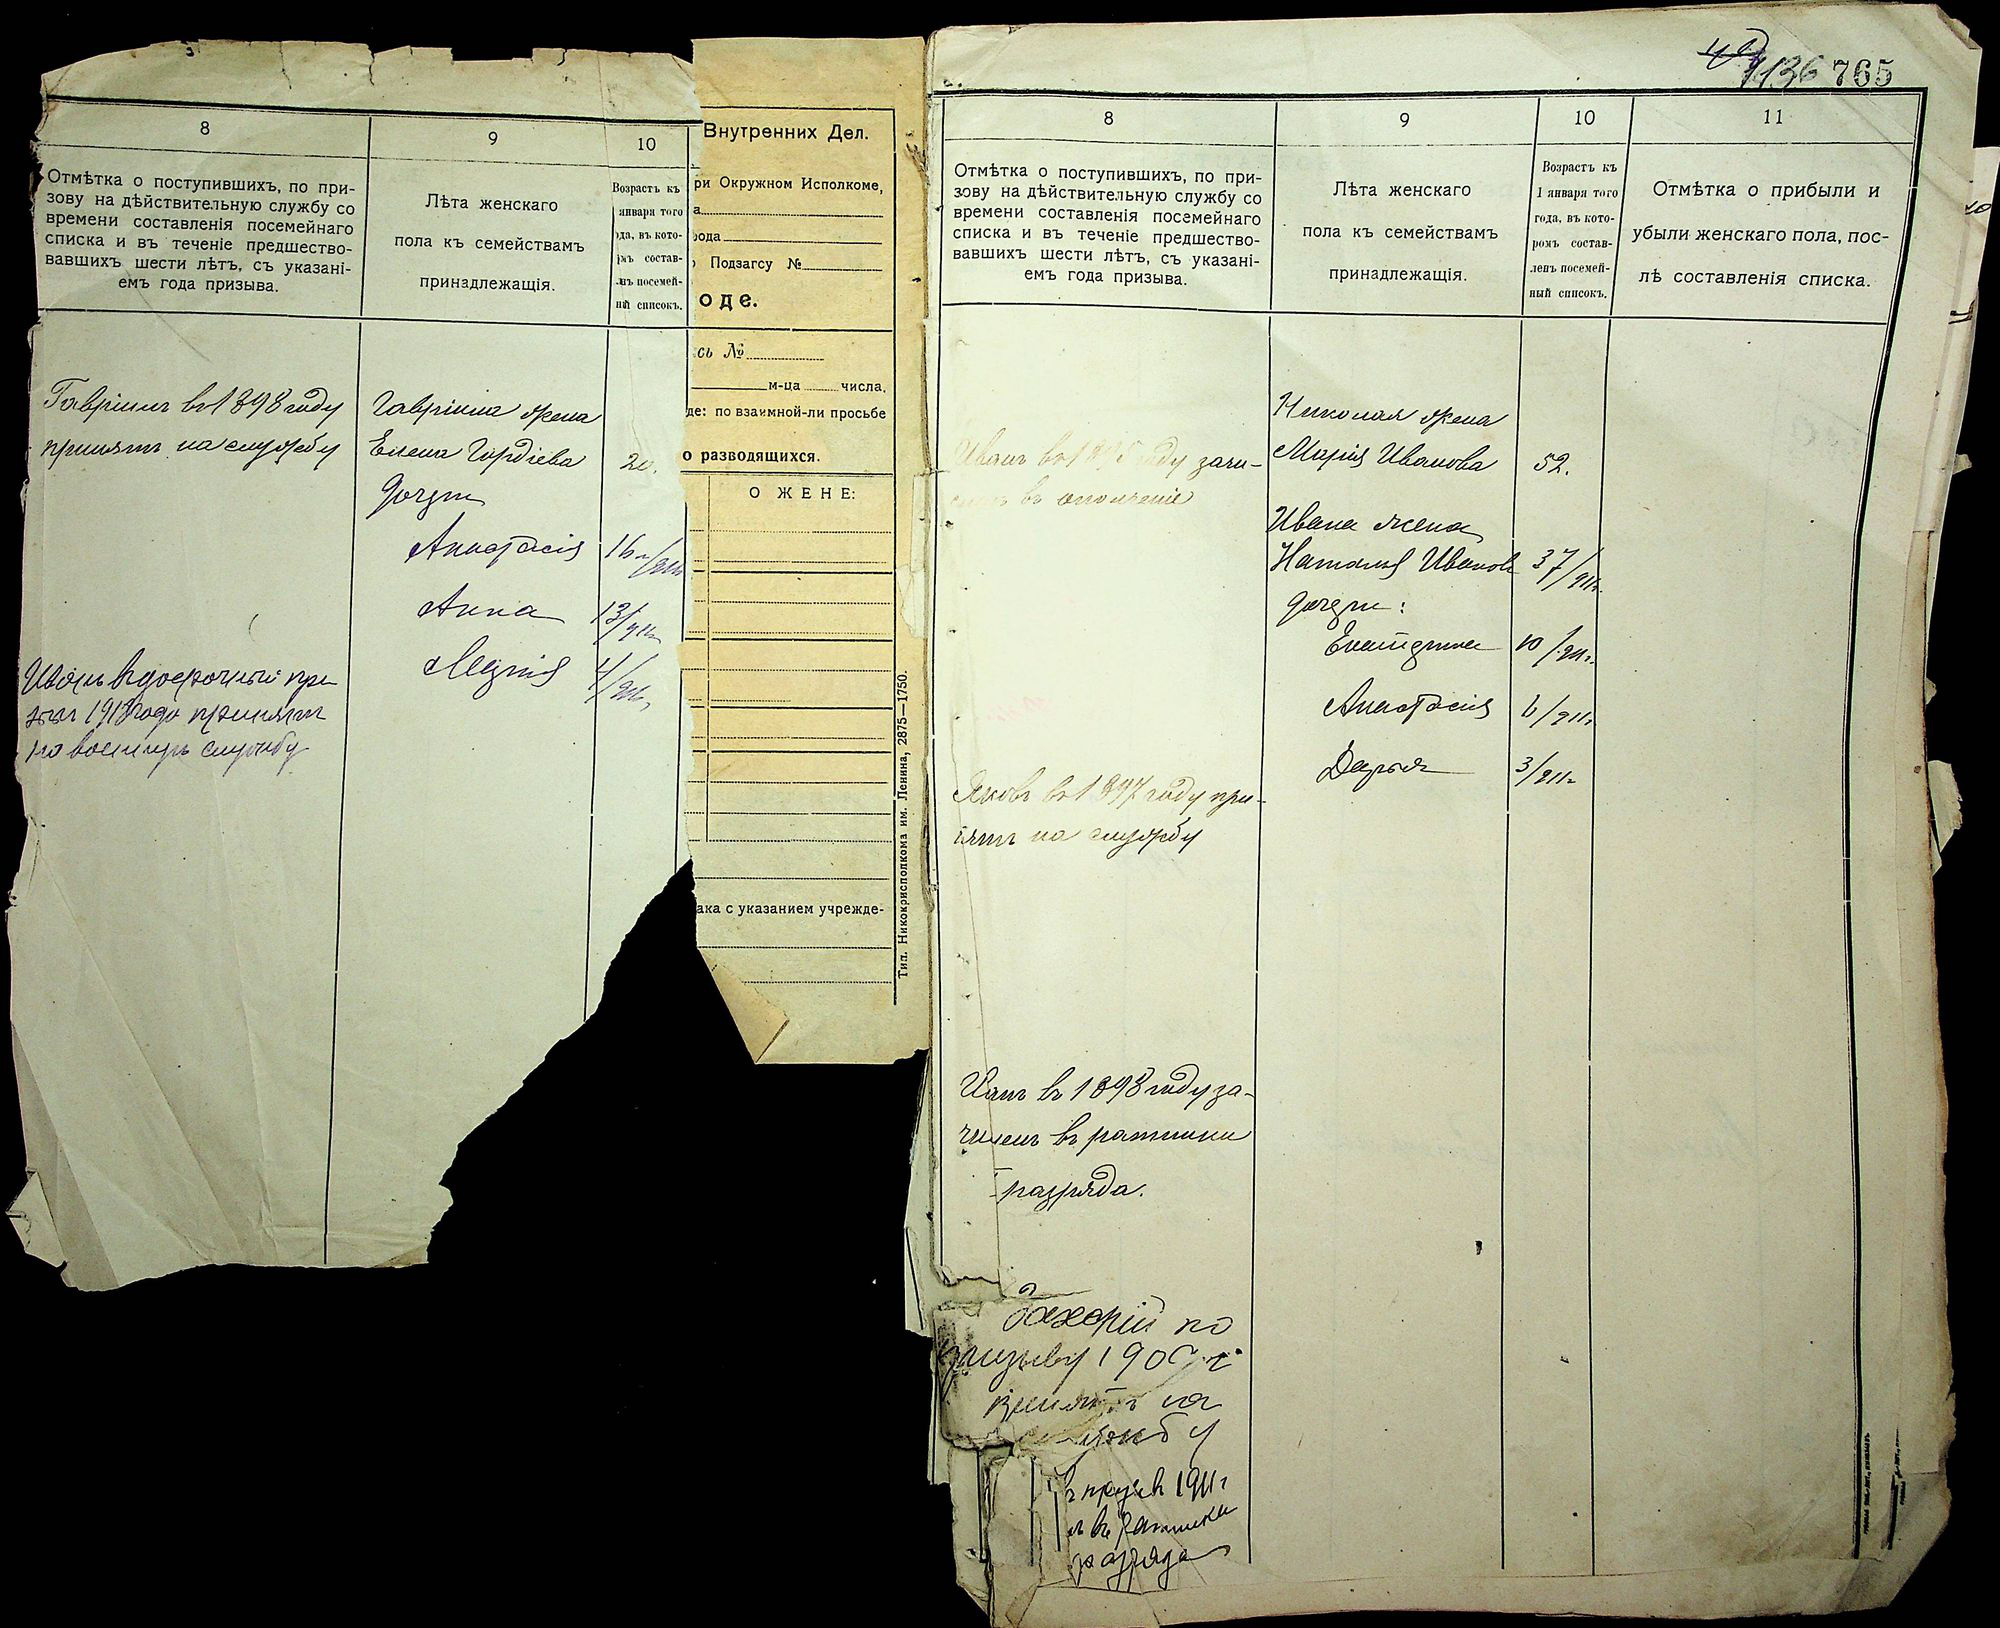 8
9
10
Отмѣтка о поступившихъ, по при-
зову на дѣйствительную службу со
времени составленія посемейнаго
списка и въ теченіе предшество-
вавшихъ шести лѣтъ, съ указані-
емъ года призыва.
Лѣта женскаго
пола къ семействамъ
принадлежащія.
Возрастъ къ
января того
ода, въ кото-
мъ состав-
нъ посемей-
ный списокъ.
Гавріилъ въ 1898 году
принятъ на службу
Гавріила жена
Елена Гордіева 20.
дочери
Анастасія 16/911
Анна 13/911
Марія 4/911
Иванъ въ досрочный при
зывъ 1918 года принятъ
на военную службу
Внутренних Дел.
ри Окружном Исполкоме,
а
рода
Подзагсу №
оде.
сь №
м-ца числа,
де: по взаимной-ли просьбе
о разводящихся.
О ЖЕНЕ:
ака с указанием учрежде-
Тип. Никокрисполкома им. Ленина, 2875—1750.
1136 765
8
9
10
11
Отмѣтка о поступившихъ, по при-
зову на дѣйствительную службу со
времени составленія посемейнаго
списка и въ теченіе предшество-
вавшихъ шести лѣтъ, съ указані-
емъ года призыва.
Лѣта женскаго
пола къ семействамъ
принадлежащія.
Возрастъ къ
1 января того
года, въ кото-
ромъ состав-
ленъ посемей-
ный списокъ.
Отмѣтка о прибыли и
убыли женскаго пола, пос-
лѣ составленія списка.
Николая жена
Марія Иванова 52.
Иванъ въ 1895 году зачи-
сленъ въ ополченіе
Ивана жена
Наталья Иванов 37/911г.
дочери:
Екатерина 10/911г.
Анастасія 6/911г
Дарья 3/911г
Яковъ въ 1897 году при-
нятъ на службу
Иванъ въ 1898 году за-
численъ въ ратники
I разряда.
Захарій по
призыву 190 г
принятъ на
службу
въ призывъ 1911 г
въ ратники
разряда